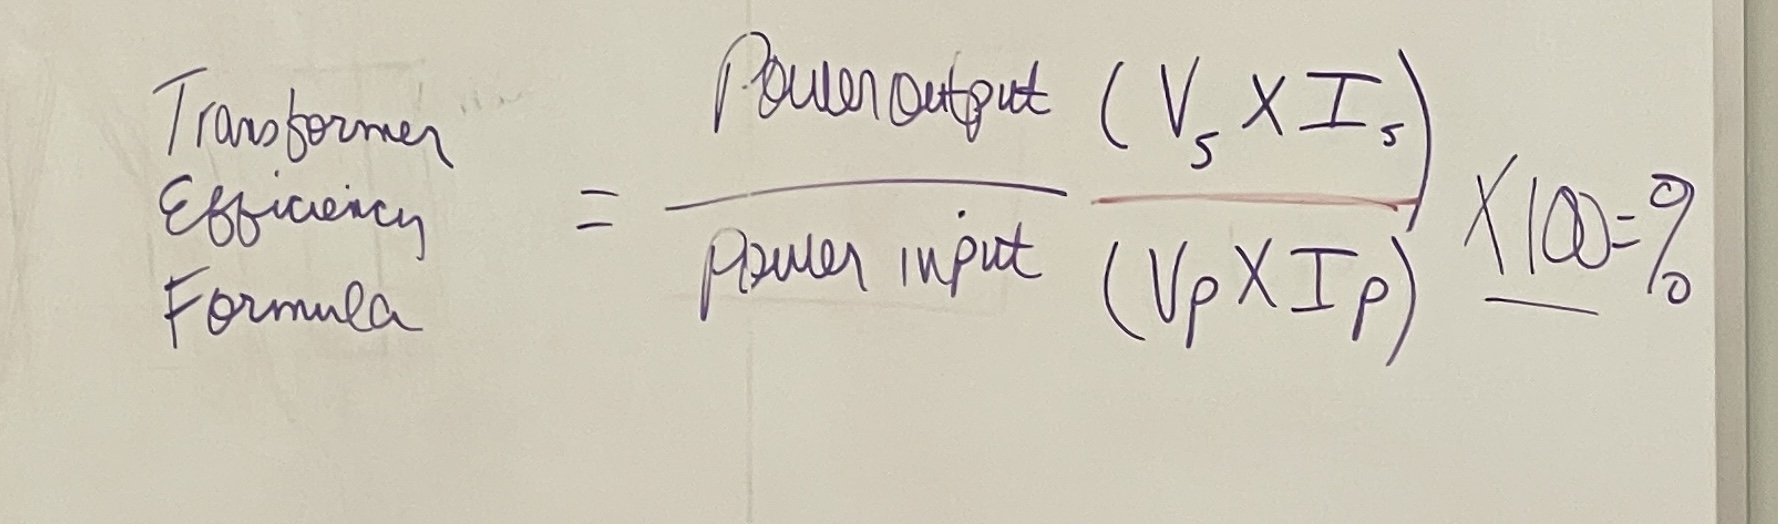 Transformer
Efficiency
Formula
=
Power output (Vs X Is)
Power input (Vp X Ip)
X 100 = %